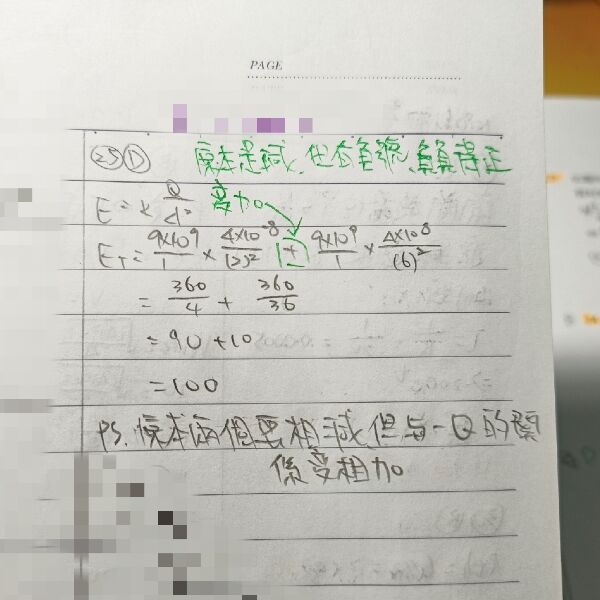 PAGE
㉕ Ⓓ 原本是減、但有負號、負負得正
E = K Q/d² 變加
E_T = 9×10⁹/1 × 4×10⁻⁸/(2)² + 9×10⁹/1 × 4×10⁻⁸/(6)²
= 360/4 + 360/36
= 90 + 10
= 100
PS. 原本兩個要相減但 -Q 的關
係變相加